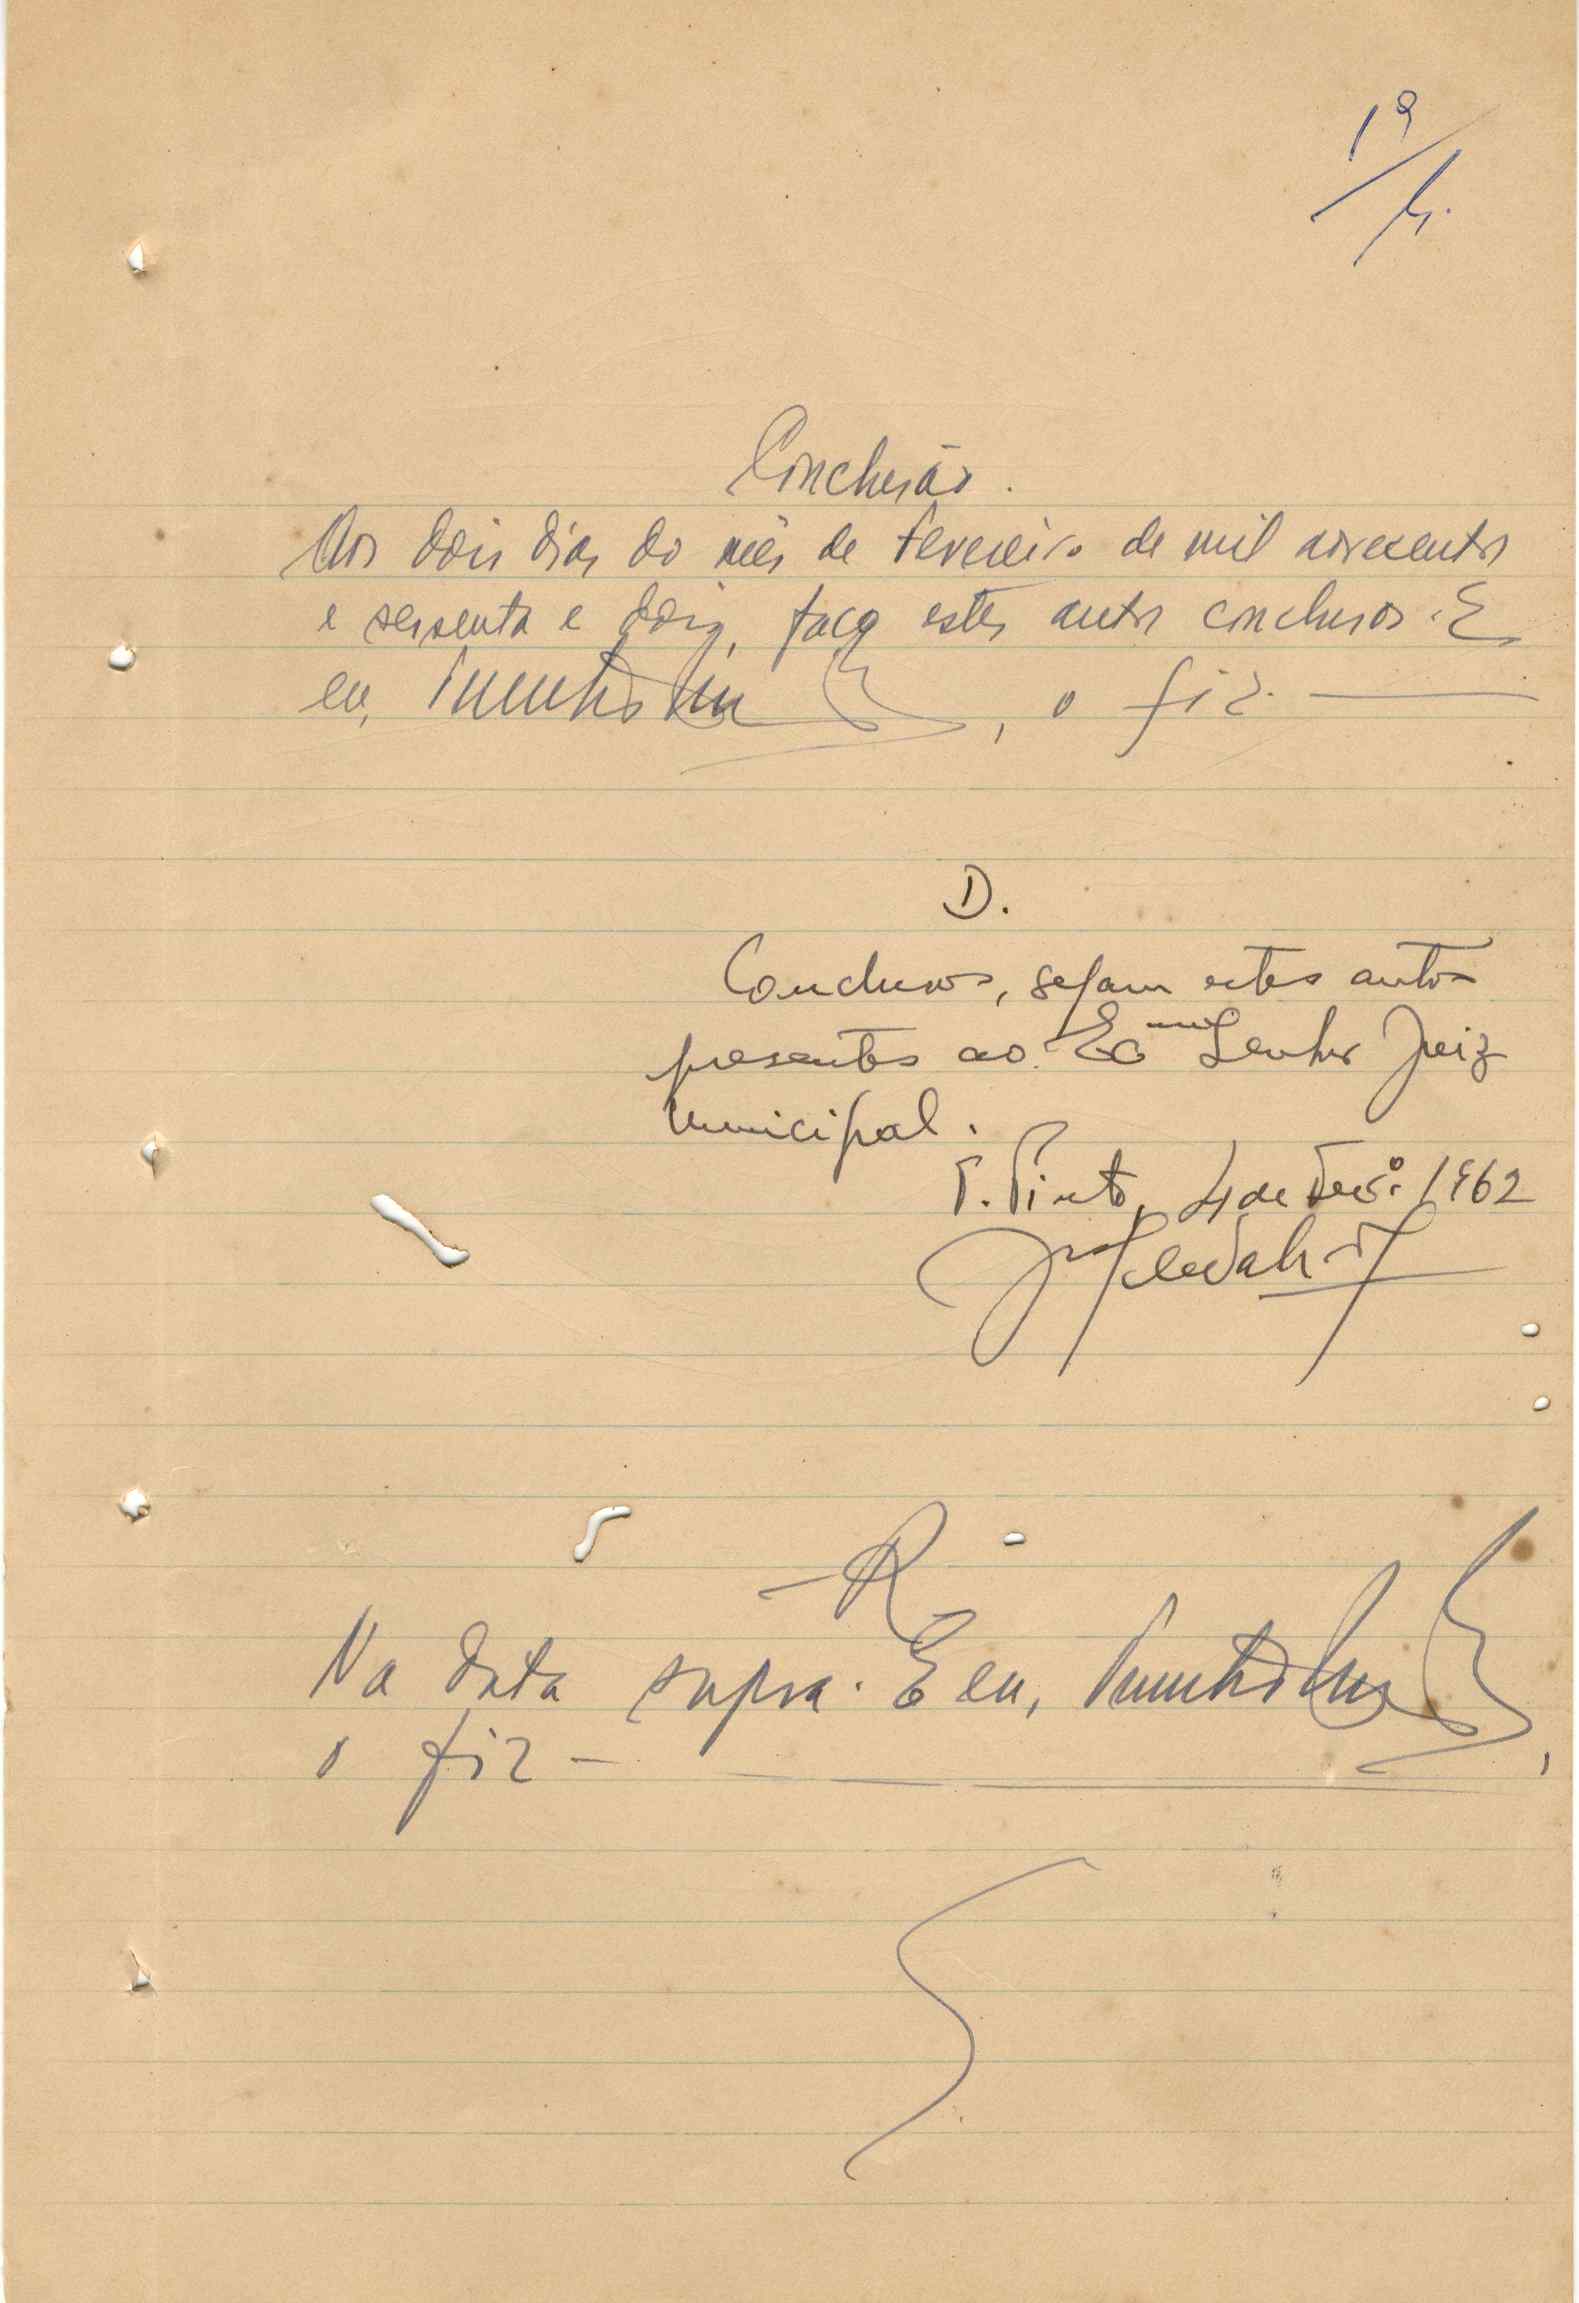 19
Conclusão.
Aos dois dias do mês de Fevereiro de mil novecentos
e sessenta e dois, faço estes autos conclusos. E
eu, , o fiz.
D.
Conclusos, sejam estes autos
presentes ao Exmo Senhor Juiz
Municipal.
P. Pinto, 4 de Fevº 1962
R
Na data supra. E eu, ,
o fiz –